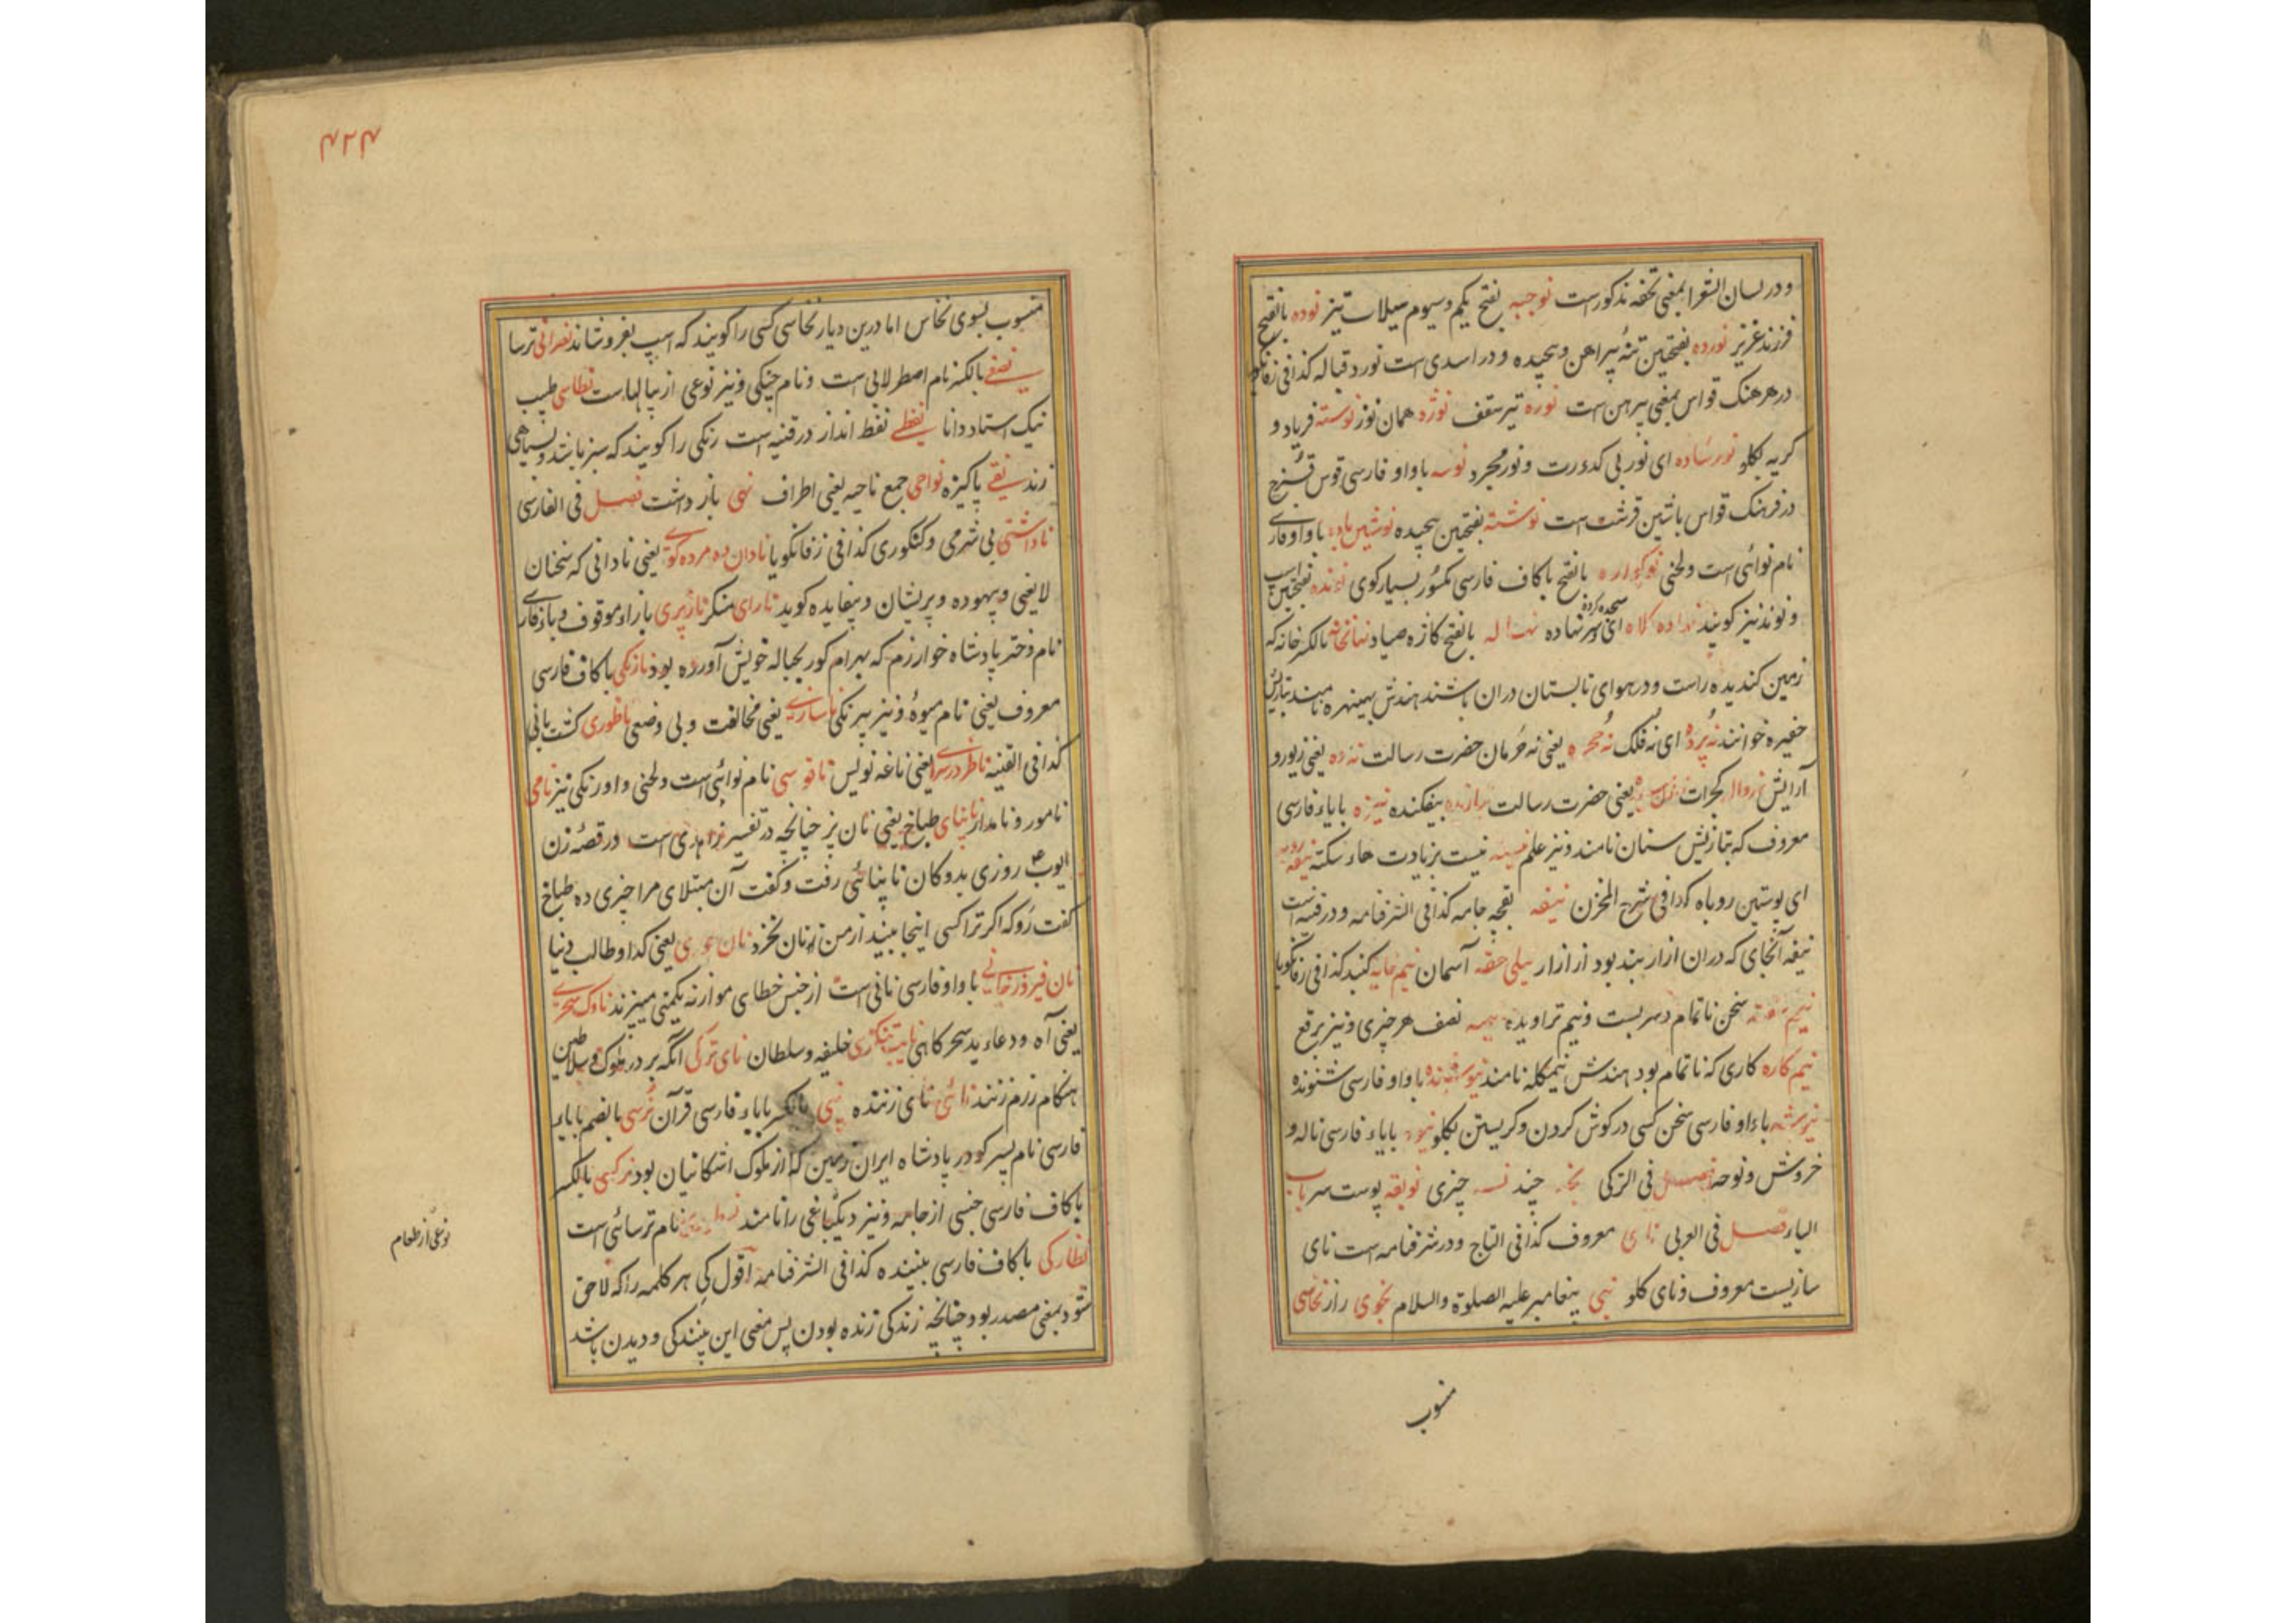 و در لسان الشعرا بمعنی تحفه مذکورست نوجبه بفتح یکم و سیوم سیلاب تیز نوده بالفتح
فرزند عزیز نورده بفتحتین تنهٔ پیراهن و پیچیده و در اسدی است نورد قباله کذا فی زفانکویا
در فرهنک قواس بمعنی پیرهن است نوره تیر سقف نوژه همان نوژ نوسته فریاد و
کریه بکلو نورساده ای نور بی کدورت و نور مجرد نوسه باواو فارسی قوس قزح
در فرهنک قواس باشین قرشت است نوشته بفتحتین پیچیده نوشین باده باواو فارسی
نام نوائی است و لحنی نوکواره بالفتح باکاف فارسی مکسور بسیار کوی نونده بفتحتین اسپ
و نوند نیز کویند نهاده کلاه ای سر نهاده سجده کرده نهاله بالفتح کازه صیاد نهانخانه بالکسر خانه که
زمین کندیده راست و در هوای تابستان دران باشند هندش بهینهره نامند بتازیش
حفیره خوانند نه پرده ای نه فلک نه حجره یعنی نه حرمان حضرت رسالت یعنی زیور و
آرایش کجرات یعنی حضرت رسالت بیفکنده نیزه بایاء فارسی
معروف که بتازیش سنان نامند و نیز علم نیست بزیادت هاء سکته نیفه روبه
ای پوستین روباه کذا فی شرح المخزن نیفه بقچه جامه کذا فی الشرفنامه و در قنیه است
نیفه آنجای که دران ازار بند بود از ازار نیلی حقه آسمان نیم خایه کنبد کذا فی زفانکویا
نیم سفته سخن ناتمام و سر بست و نیم تراویده نیمه نصف هر چیزی و نیز برقع
نیم کاره کاری که ناتمام بود هندش نیمکله نامند نیوشنده باواو فارسی شنونده
نیوشه باواو فارسی سخن کسی در کوش کردن و کریستن بکلو نیوه بایاء فارسی ناله و
خروش و نوحه فصل فی الترکی چند چیزی نویقه پوست سر باب
الیاء فصل فی العربی نای معروف کذا فی التاج و در شرفنامه است نای
سازیست معروف و نای کلو نبی پیغامبر علیه الصلوة والسلام نجوی راز نخاسی
منسوب
۴۲۴
منسوب بسوی نخاس اما درین دیار نخاسی کسی را کویند که اسپ بفروشاند نصرانی ترسا
نصفی بالکسر نام اصطرلابی است و نام چنکی و نیز نوعی از پیالهاست نطاسی طبیب
نیک استاد دانا نفطی نفط انداز در قنیه است زنکی را کویند که سبز باشد و بسیاهی
زند نقی پاکیزه نواحی جمع ناحیه یعنی اطراف نهی باز داشت فصل فی الفارسی
ناداشتی بی شرمی و کنکوری کذا فی زفانکویا نادان ده مرده کوی یعنی نادانی که سخنان
لایعنی و بیهوده و پریشان و بیفایده کوید نارای منکر نازپری بازاء موقوف و باء فارسی
نام دختر پادشاه خوارزم که بهرام کور بحباله خویش آورده بود نازنکی باکاف فارسی
معروف یعنی نام میوهٔ و نیز پیرنکی ناسازی یعنی مخالفت و بی وضعی ناطوری کشت بانی
کذا فی القنیه یعنی ناغه نویس ناقوسی نام نوائی است و لحنی و اورنکی نیز نامی
نامور و نامدار نانبای طباخ یعنی نان پز چنانچه در تفسیر زاهدی است در قصه زن
ایوب ع روزی بدوکان نانبائی رفت و کفت آن مبتلای مرا چیزی ده طباخ
کفت رو که اکر ترا کسی اینجا بیند از من نان نخرد یعنی کدا و طالب دنیا
نان فیروزخانی باواو فارسی نانی است از جنس خطای موازنه یکمنی میپزند ناوک سحری
یعنی آه و دعاء بد سحرکاهی خلیفه و سلطان نای ترکی آنکه بر در ملوک و سلاطین
هنکام رزم زنند نائی نای زننده نپی بالکسر بایاء فارسی قرآن نرسی بالضم بایاء
فارسی نام پسر کودرز پادشاه ایران زمین که از ملوک اشکانیان بود نرکسی بالکسر
باکاف فارسی جنسی از جامه و نیز دیکبانی را نامند نام ترسائی است
نظارکی باکاف فارسی بیننده کذا فی الشرفنامه اقول کی هر کلمه را که لاحق
شود بمعنی مصدر بود چنانچه زندکی زنده بودن پس معنی این بینندکی و دیدن باشد
نوعی از طعام